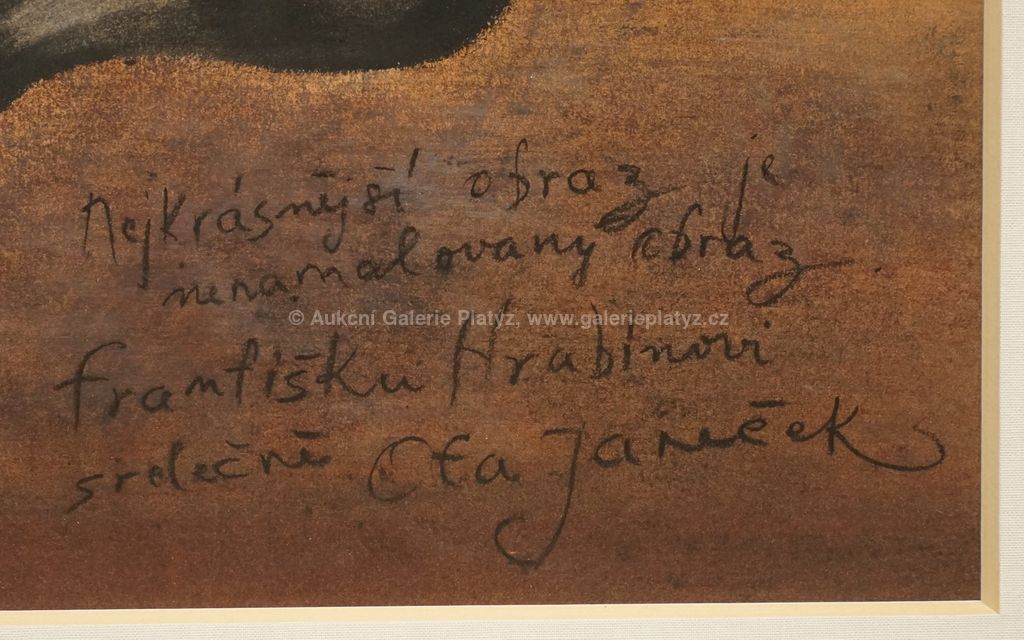 Nejkrásnější obraz je
nenamalovaný obraz.
© Aukcní Galerie Platýz, www.galerieplatyz.cz
Františku Hrabinovi
srdečně Ota Janeček